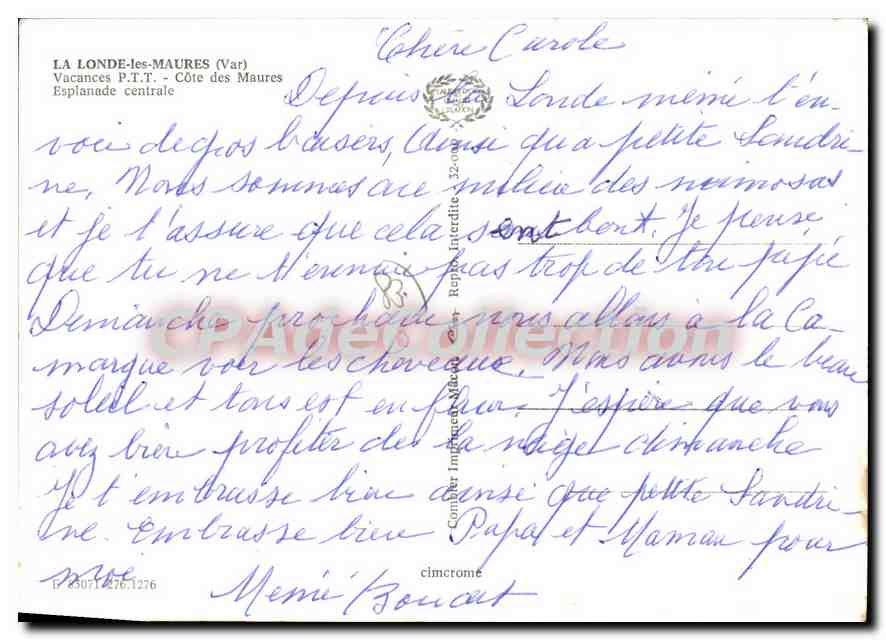 LA LONDE-les-MAURES (Var)
Vacances P.T.T. - Côte des Maures
Esplanade centrale
Chère Carole
Depuis La Londe mémé t'en-
voie de gros baisers, ainsi qu'a petite Sandri-
ne. Nous sommes au milieu des mimosas
et je t'assure que cela sent bont. Je pense
que tu ne t'ennuie pas trop de ton papé
Demanche prochain nous allons à la Ca-
margue voir les chevaux. Nous avons le beau
soleil et tous est en fleur. J'espère que vous
avez bien profiter de la neige dimanche
Je t'embrasse bien ainsi que petite Sandri-
ne. Embrasse bien Papa et Maman pour
moi
Mémé
83
CPA de Collection
Combier Imprimeur Mâcon
Repro. Interdite - 32-000
cimcrome
83071 276.1276